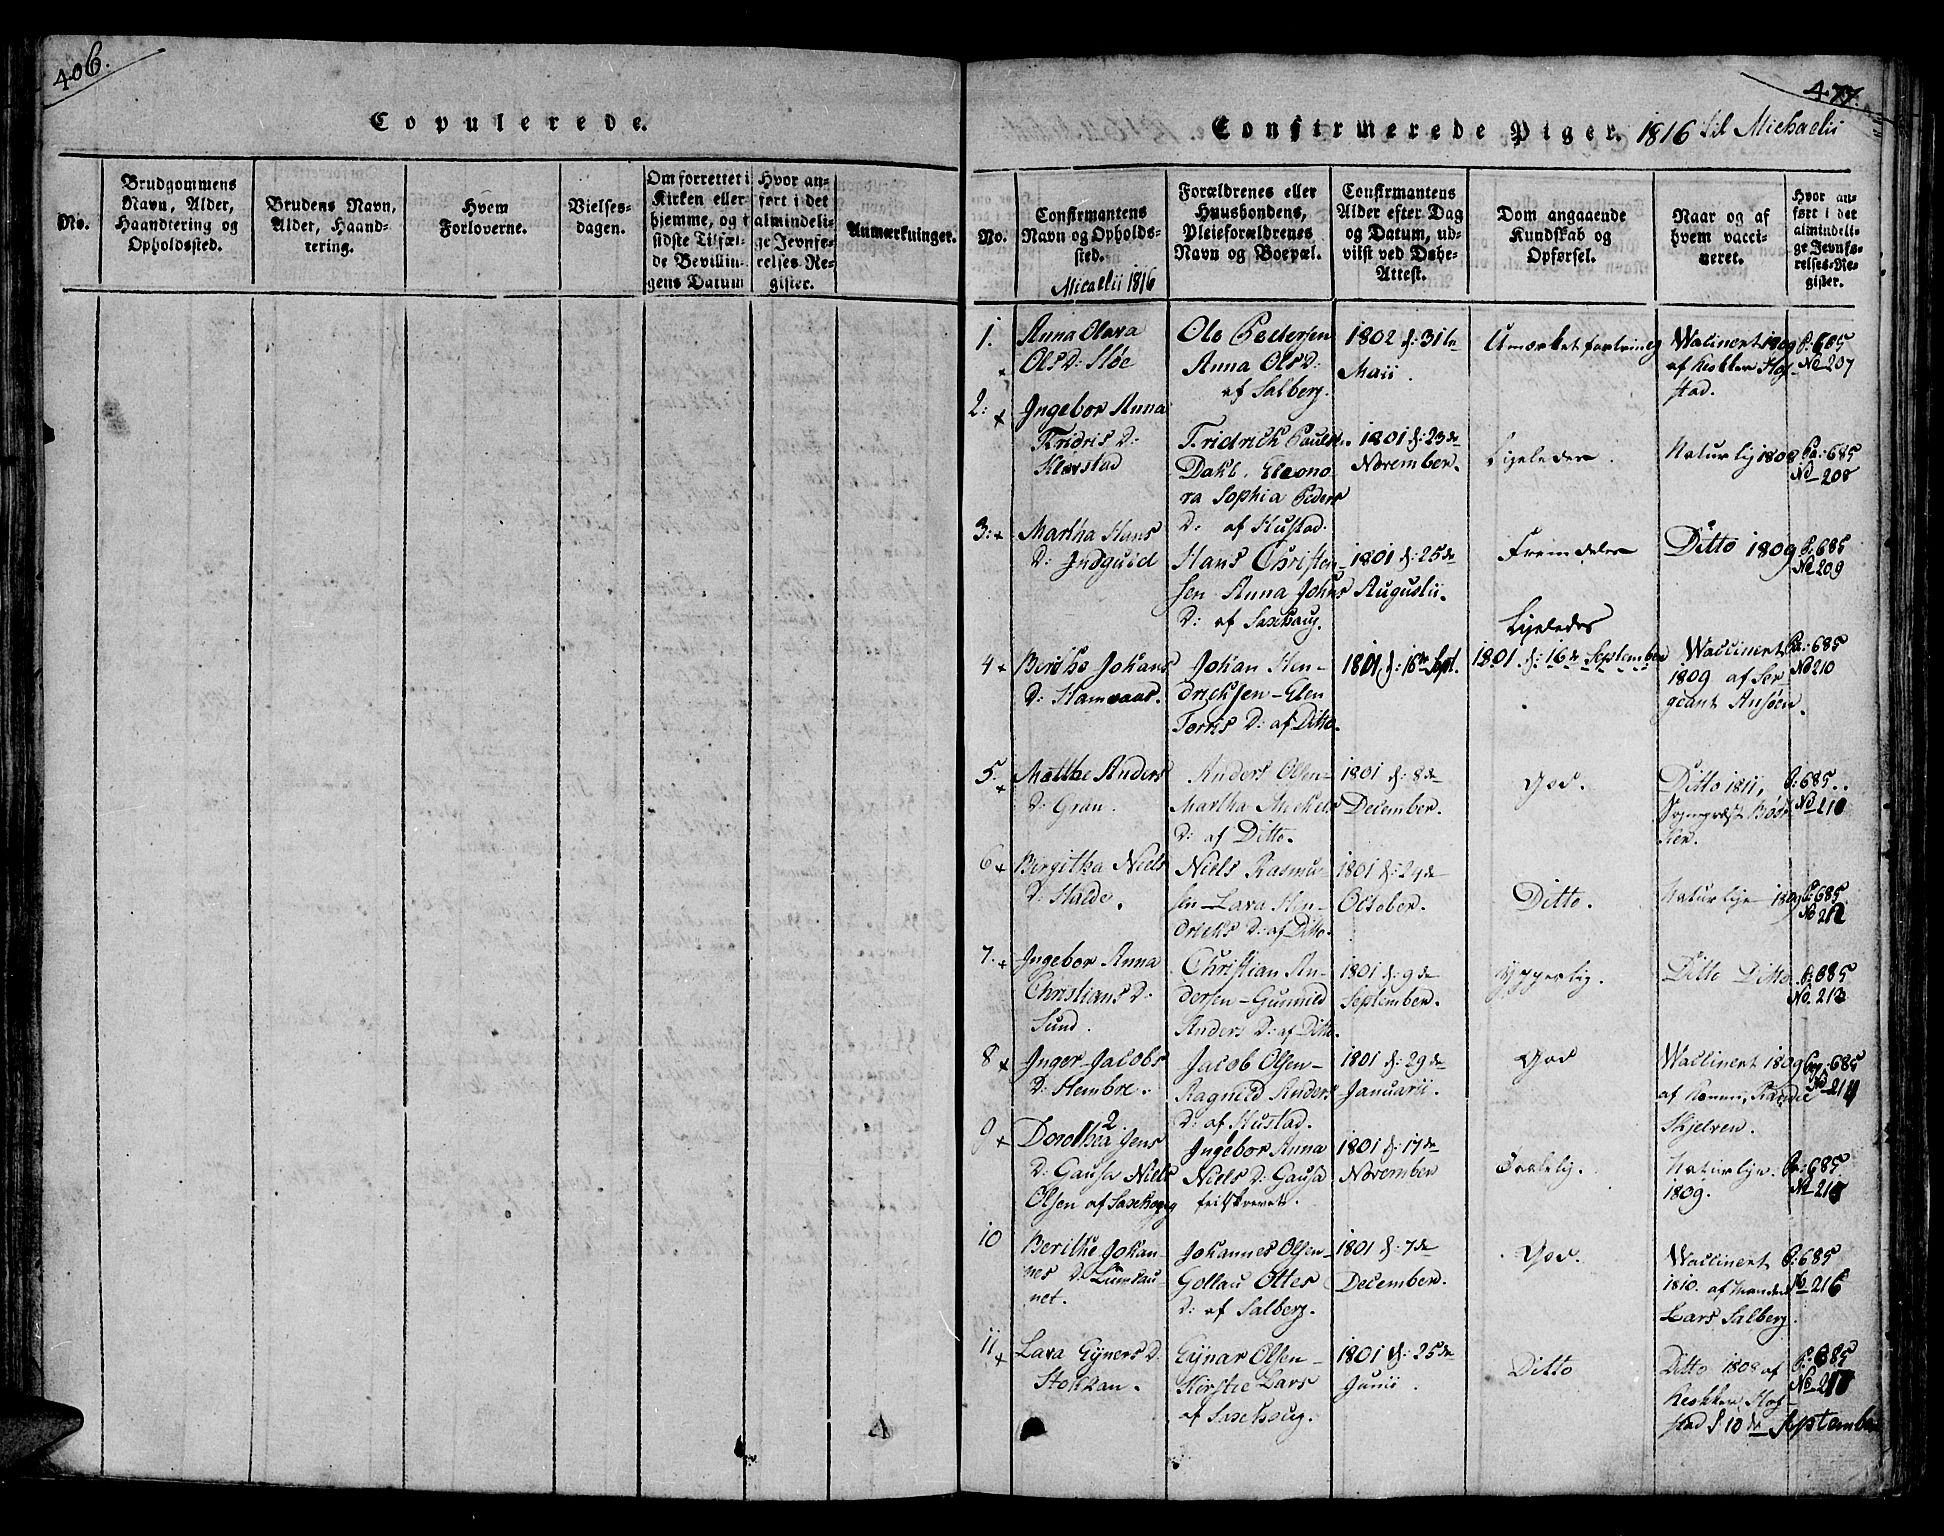 406.
Copulerede.
No.
Brudgommens
Navn, Alder,
Haandtering og
Opholdssted.
Brudens Navn,
Alder, Haand-
tering.
Hvem
Forloverne.
Vielses-
dagen.
Om forrettet i
Kirken eller
hjemme, og i
sidste Tilfæl-
de Bevillin-
gens Datum
Hvor an-
ført i det
almindeli-
ge Jevnfø-
relses-Re-
gister.
Anmærkninger.
477.
Confirmerede Piger. 1816 til Michaelii
No.
Confirmantens
Navn og Opholds-
sted.
Micaelii 1816
Forældrenes eller
Huusbondens,
Pleieforældrenes
Navn og Boepæl.
Confirmantens
Alder efter Dag
og Datum, ud-
viist ved Døbe-
Attest.
Dom angaaende
Kundskab og
Opførsel.
Naar og af
hvem vacci-
neret.
Hvor an-
ført i det
almindeli-
ge Jevnfø-
relses-Re-
gister.
1.
Anna Olava
Ols D:
Ole Pedersen
Anna Ols D:
af Salberg.
1802 d: 31te
Maii.
Wacineret 1809
af
stad.
P: 685
No 207
2:
Ingebor Anna
Fridris D:
Klevstad
Fridrich Pauls.
Dahl. Eleono
ra Sophia Peders
D: af Hustad.
1801 d: 23de
November.
Ligeledes.
Naturlig 1808
Pa: 685
No 208
3:
Martha Hans
D:
Hans Christen-
sen Anna Johns
D: af Saxhoug.
1801 d: 25de
Augustii.
Fremdeles
Ditto 1809
P: 685
No 209
4
Berithe Johans
D: Hamvaas.
Johan Hen-
dricksen - Elen
Torris D: af Ditto.
1801 d: 16de Sept.
Ligeledes
1801 d: 16de September
Waccinert
1809 af Ser-
geant
Pa: 685
No 210
5.
Malthe Anders
D: Gran.
Anders Olsen-
Martha Mickels
D: af Ditto.
1801 d: 8de
December.
God.
Ditto 1811,
Sogneprest
ker.
P: 685.
No 211
6
Birgitha Niels
D: Halde.
Niels Rasmu-
sen - Lava Hen-
dricks D: af Ditto.
1801 d: 24de
October.
Ditto.
Naturlige 1809
P: 685.
No 212
7.
Ingebor Anna
Christians D.
Sund.
Christian An-
dersen - Gunnild
Anders D: af Ditto.
1801 d: 9de
September.
Ypperlig.
Ditto Ditto.
P: 685
No. 213
8
Inger Jacobs
D: Hembre.
Jacob Olsen-
Ragnild Anders
D: af Hustad.
1801 d: 29de
Januarii.
God
Waccinert 1809
af
Skjelven.
Pag: 685
No 214
9
Dorothea Jens
D: Gausa Niels
Olsen af Saxhoug
Ingebor Anna
Niels D: Gausa
feilskrevet.
1801 d: 17de
November
Naturlige.
1809.
Pa: 685
No 215
10
Berithe Johan-
nes D:
net.
Johannes Olsen-
Gollau Ottes
D: af Salberg.
1801 d: 7de
December.
God.
Waccinert
1810. af
Lars Salberg.
P: 685
No 216
11
Lava Ejners D.
Stokkan.
Ejnar Olsen-
Kirstie Lars
af Saxhoug.
1801 d: 25de
Junii.
Ditto
Ditto 1808 af
stad d 10de September
P: 685
No 217